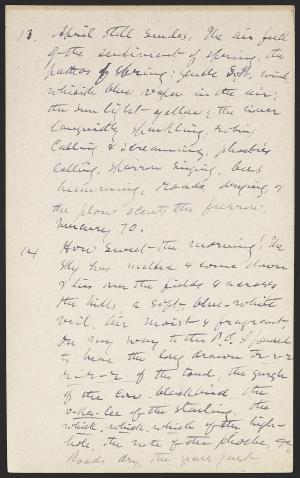 13. April still smiles. The air full
of the sentiment of spring, the
pathos of spring; gentle South wind,
whitish blue vapor in the air;
the sun light yellow; the river
languidly sparkling, robins
calling & screaming, phoebies
calling, sparrows singing, bees
humming, roads drying &
the plow scents the furrow.
Mercury 70.
14 How sweet the morning! The
sky has melted & come down
& lies over the fields & across
the hills, a soft, blue-white
veil. Air moist & fragrant.
On my way to the P.O. I paused
to hear the long drawn tr-r-r
r-r-r-r of the toad, the gurgle
of the cow-blackbird, the
o-ka-lee of the starling, the
whick, whick, whick of the high-
hole, the note of the phoebe, &c
Roads dry, the grass just